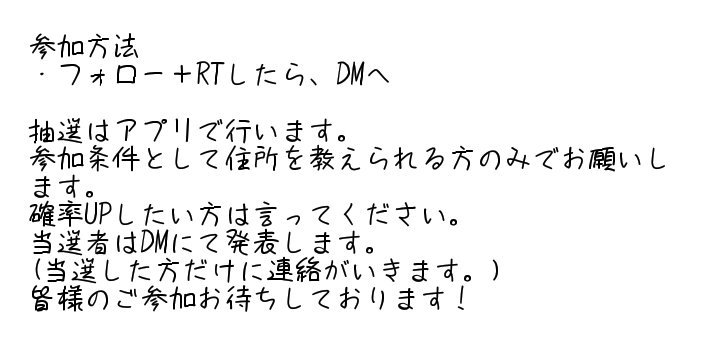 参加方法
・フォロー＋RTしたら、DMへ
抽選はアプリで行います。
参加条件として住所を教えられる方のみでお願いし
ます。
確率UPしたい方は言ってください。
当選者はDMにて発表します。
(当選した方だけに連絡がいきます。)
皆様のご参加お待ちしております！